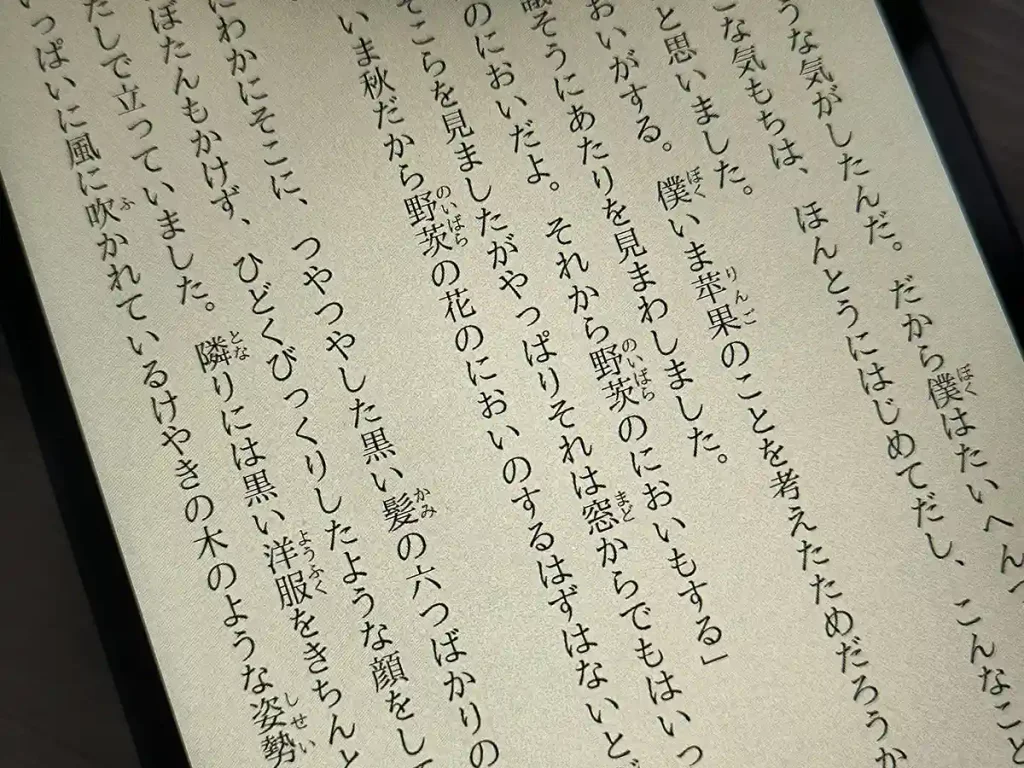 うな気がしたんだ。だから僕(ぼく)はたいへんつ
な気もちは、ほんとうにはじめてだし、こんなこと
と思いました。
おいがする。僕(ぼく)いま苹果(りんご)のことを考えたためだろうか
議そうにあたりを見まわしました。
のにおいだよ。それから野茨(のいばら)のにおいもする」
そこらを見ましたがやっぱりそれは窓(まど)からでもはいっ
いま秋だから野茨(のいばら)の花のにおいのするはずはないと
にわかにそこに、つやつやした黒い髪(かみ)の六つばかりの
ぼたんもかけず、ひどくびっくりしたような顔をして
たしで立っていました。隣(とな)りには黒い洋服(ようふく)をきちんと
いっぱいに風に吹(ふ)かれているけやきの木のような姿勢(しせい)